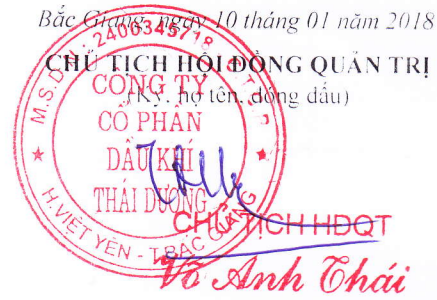 Bắc Giang, ngày 10 tháng 01 năm 2018
CHỦ TỊCH HỘI ĐỒNG QUẢN TRỊ
(Ký, họ tên, đóng dấu)
M.S.D.N: 2400345718 - C.T.C.P
CÔNG TY
CỔ PHẦN
DẦU KHÍ
THÁI DƯƠNG
H.VIỆT YÊN - T.BẮC GIANG
CHỦ TỊCH HĐQT
Võ Anh Thái